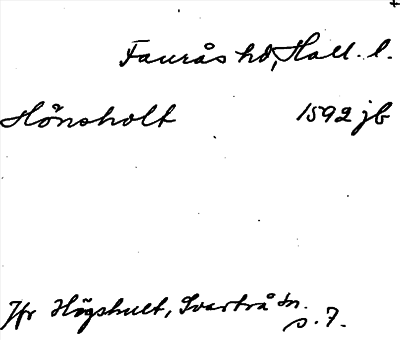 Faurås hd, Hall. l.
Hönsholt 1592 jb
Jfr Högshult, Svartrå sn.
s. 7.